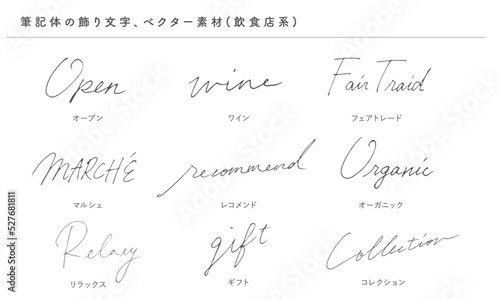 筆記体の飾り文字、ベクター素材(飲食店系)
Open wine Fair Traid
オープン ワイン フェアトレード
MARCHÉ recommend Organic
マルシェ レコメンド オーガニック
Relaxy gift Collection
リラックス ギフト コレクション
Adobe Stock | #527681811